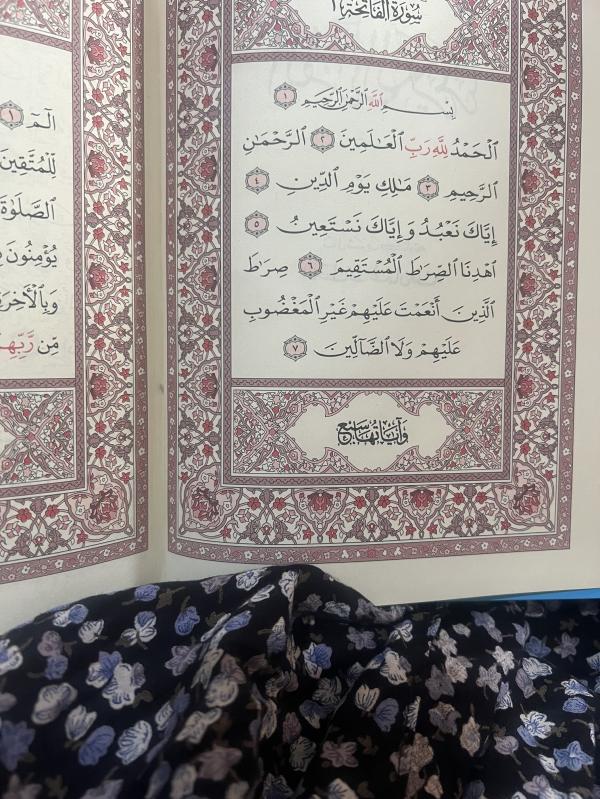 سُورَةُ الْفَاتِحَةِ ١
بِسْمِ اللَّهِ الرَّحْمَٰنِ الرَّحِيمِ ١
اَلْحَمْدُ لِلَّهِ رَبِّ الْعَالَمِينَ ٢ اَلرَّحْمَٰنِ
الرَّحِيمِ ٣ مَالِكِ يَوْمِ الدِّينِ ٤
إِيَّاكَ نَعْبُدُ وَإِيَّاكَ نَسْتَعِينُ ٥
اِهْدِنَا الصِّرَاطَ الْمُسْتَقِيمَ ٦ صِرَاطَ
الَّذِينَ أَنْعَمْتَ عَلَيْهِمْ غَيْرِ الْمَغْضُوبِ
عَلَيْهِمْ وَلَا الضَّالِّينَ ٧
وَآيَاتُهَا سَبْعٌ
الٓمٓ ١
لِلْمُتَّقِينَ
الصَّلَوٰةَ
يُؤْمِنُونَ
وَبِالْآخِرَةِ
مِّن رَّبِّهِمْ